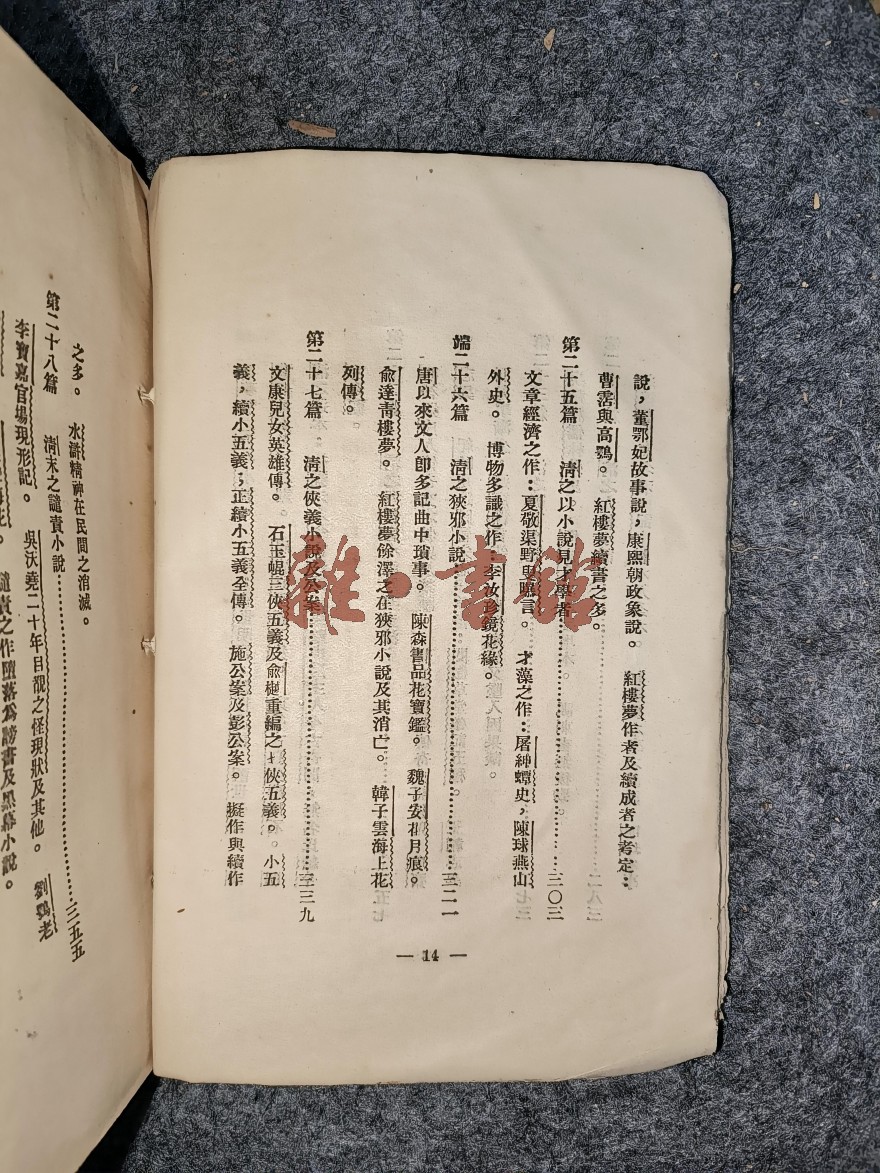 說，董鄂妃故事說，康熙朝政象說。　紅樓夢作者及續成者之考定：
曹霑與高鶚。　紅樓夢續書之多。
第二十五篇　清之以小說見才學者……三〇三
文章經濟之作：夏敬渠野叟曝言。　才藻之作：屠紳蟫史，陳球燕山
外史。　博物多識之作：李汝珍鏡花緣。
端二十六篇　清之狹邪小說……三二一
唐以來文人卽多記曲中瑣事。　陳森書品花寶鑑。　魏子安花月痕。
俞達青樓夢。　紅樓夢餘澤之在狹邪小說及其消亡。　韓子雲海上花
列傳。
第二十七篇　清之俠義小說及公案……三三九
文康兒女英雄傳。　石玉崐三俠五義及俞樾重編之七俠五義。　小五
義，續小五義；正續小五義全傳。　施公案及彭公案。　擬作與續作
— 14 —
之多。　水滸精神在民間之消滅。
第二十八篇　清末之譴責小說……三五五
李寶嘉官場現形記。　吳沃堯二十年目覩之怪現狀及其他。　劉鶚老
譴責之作墮落爲謗書及黑幕小說。
雜·書館